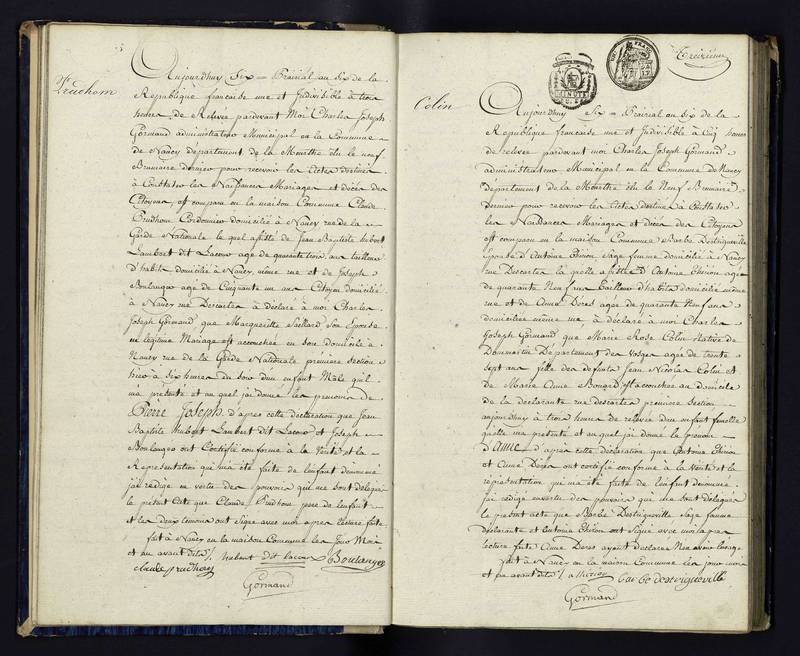 5
Prudhom
Aujourdhuy Six = Prairial an Six de la
Republique francaise une et Indivisible à trois
heures de Relevée pardevant Moi Charles Joseph
Gormand administrateur Municipal en la Commune
de Nancy département de la Meurthe élu le neuf
Brumaire dernier pour recevoir les Actes destinés
à Constater les Naissances Mariages et décès des
Citoyens, est comparu en la maison Commune Claude
Prudhom Cordonnier domicilié à Nancy rue de la
Garde Nationale le quel assisté de Jean Baptiste hubert
Lambert dit Lacour age de quarante trois ans tailleur
d'habits domicilié à Nancy même rue et de Joseph
Boulanger age de Cinquante un ans Citoyen domicilié
à Nancy rue Descartes à déclaré à moi Charles
Joseph Gormand que Marguerite Saillard Son Epouse
en légitime Mariage est accouchée en son domicile à
Nancy rue de la Garde Nationale première Section
hier à Six heures du soir d'un enfant Mâle quil
m'a présenté et au quel jai donné les prenoms de
Pierre Joseph d'apres cette déclaration que Jean
Baptiste hubert Lambert dit Lacour et Joseph
Boulanger ont Certifié conforme à la Vérité et la
Représentation qui ma été faite de lenfant denommé
jai redigé en vertu des pouvoirs qui me sont délégués
le présent Acte que Claude Prudhom pere de lenfant
et les deux temoins ont Signé avec moi apres lecture faite
fait à Nancy en la maison Commune les Jour Mois
et an avant dits /. hubert dit lacour Boulanger
claude prudhom
Gormand
MINUTE
Treizieme
Colin
Aujourdhuy Six = Prairial an Six de la
Republique francaise une et Indivisible à Cinq heures
de relevée pardevant moi Charles Joseph Gormand
administrateur Municipal en la Commune de Nancy
département de la Meurthe élu le Neuf Brumaire
Dernier pour recevoir les Actes destinés à Constater
les Naissances Mariages et décès des Citoyens
est comparu en la maison Commune Barbe Destrigneville
épouse d'Antoine Thirion Sage femme domiciliée à Nancy
rue Descartes la quelle assistée d'Antoine Thirion age
de quarante Neuf ans tailleur d'habits domicilié même
rue et de Anne Deres agée de quarante Neuf ans
domiciliée même rue, à déclaré à moi Charles
Joseph Gormand que Marie Rose Colin Native de
Département des Vosges agée de trente
Sept ans fille des defunts Jean Nicolas Colin et
de Marie Anne est accouchée au domicile
de la déclarante rue descartes premiere Section
aujourdhuy à trois heures de relevée d'un enfant femelle
quelle ma présenté et au quel jai donné le prenom
d'ANNE d'apres cette déclaration que Antoine Thirion
et Anne Deres ont certifié conforme à la Verité et la
réprésentation qui ma été faite de lenfant denommé
jai redigé en vertu des pouvoirs qui me sont délégués
le présent acte que Barbe Destrigneville Sage femme
déclarante et Antoine Thirion ont Signé avec moi apres
lecture faite Anne Deres ayant déclaré Non avoir lusage
fait à Nancy en la maison Commune les jour mois
et an avant dits /. a thirion barbe destrigneville
Gormand